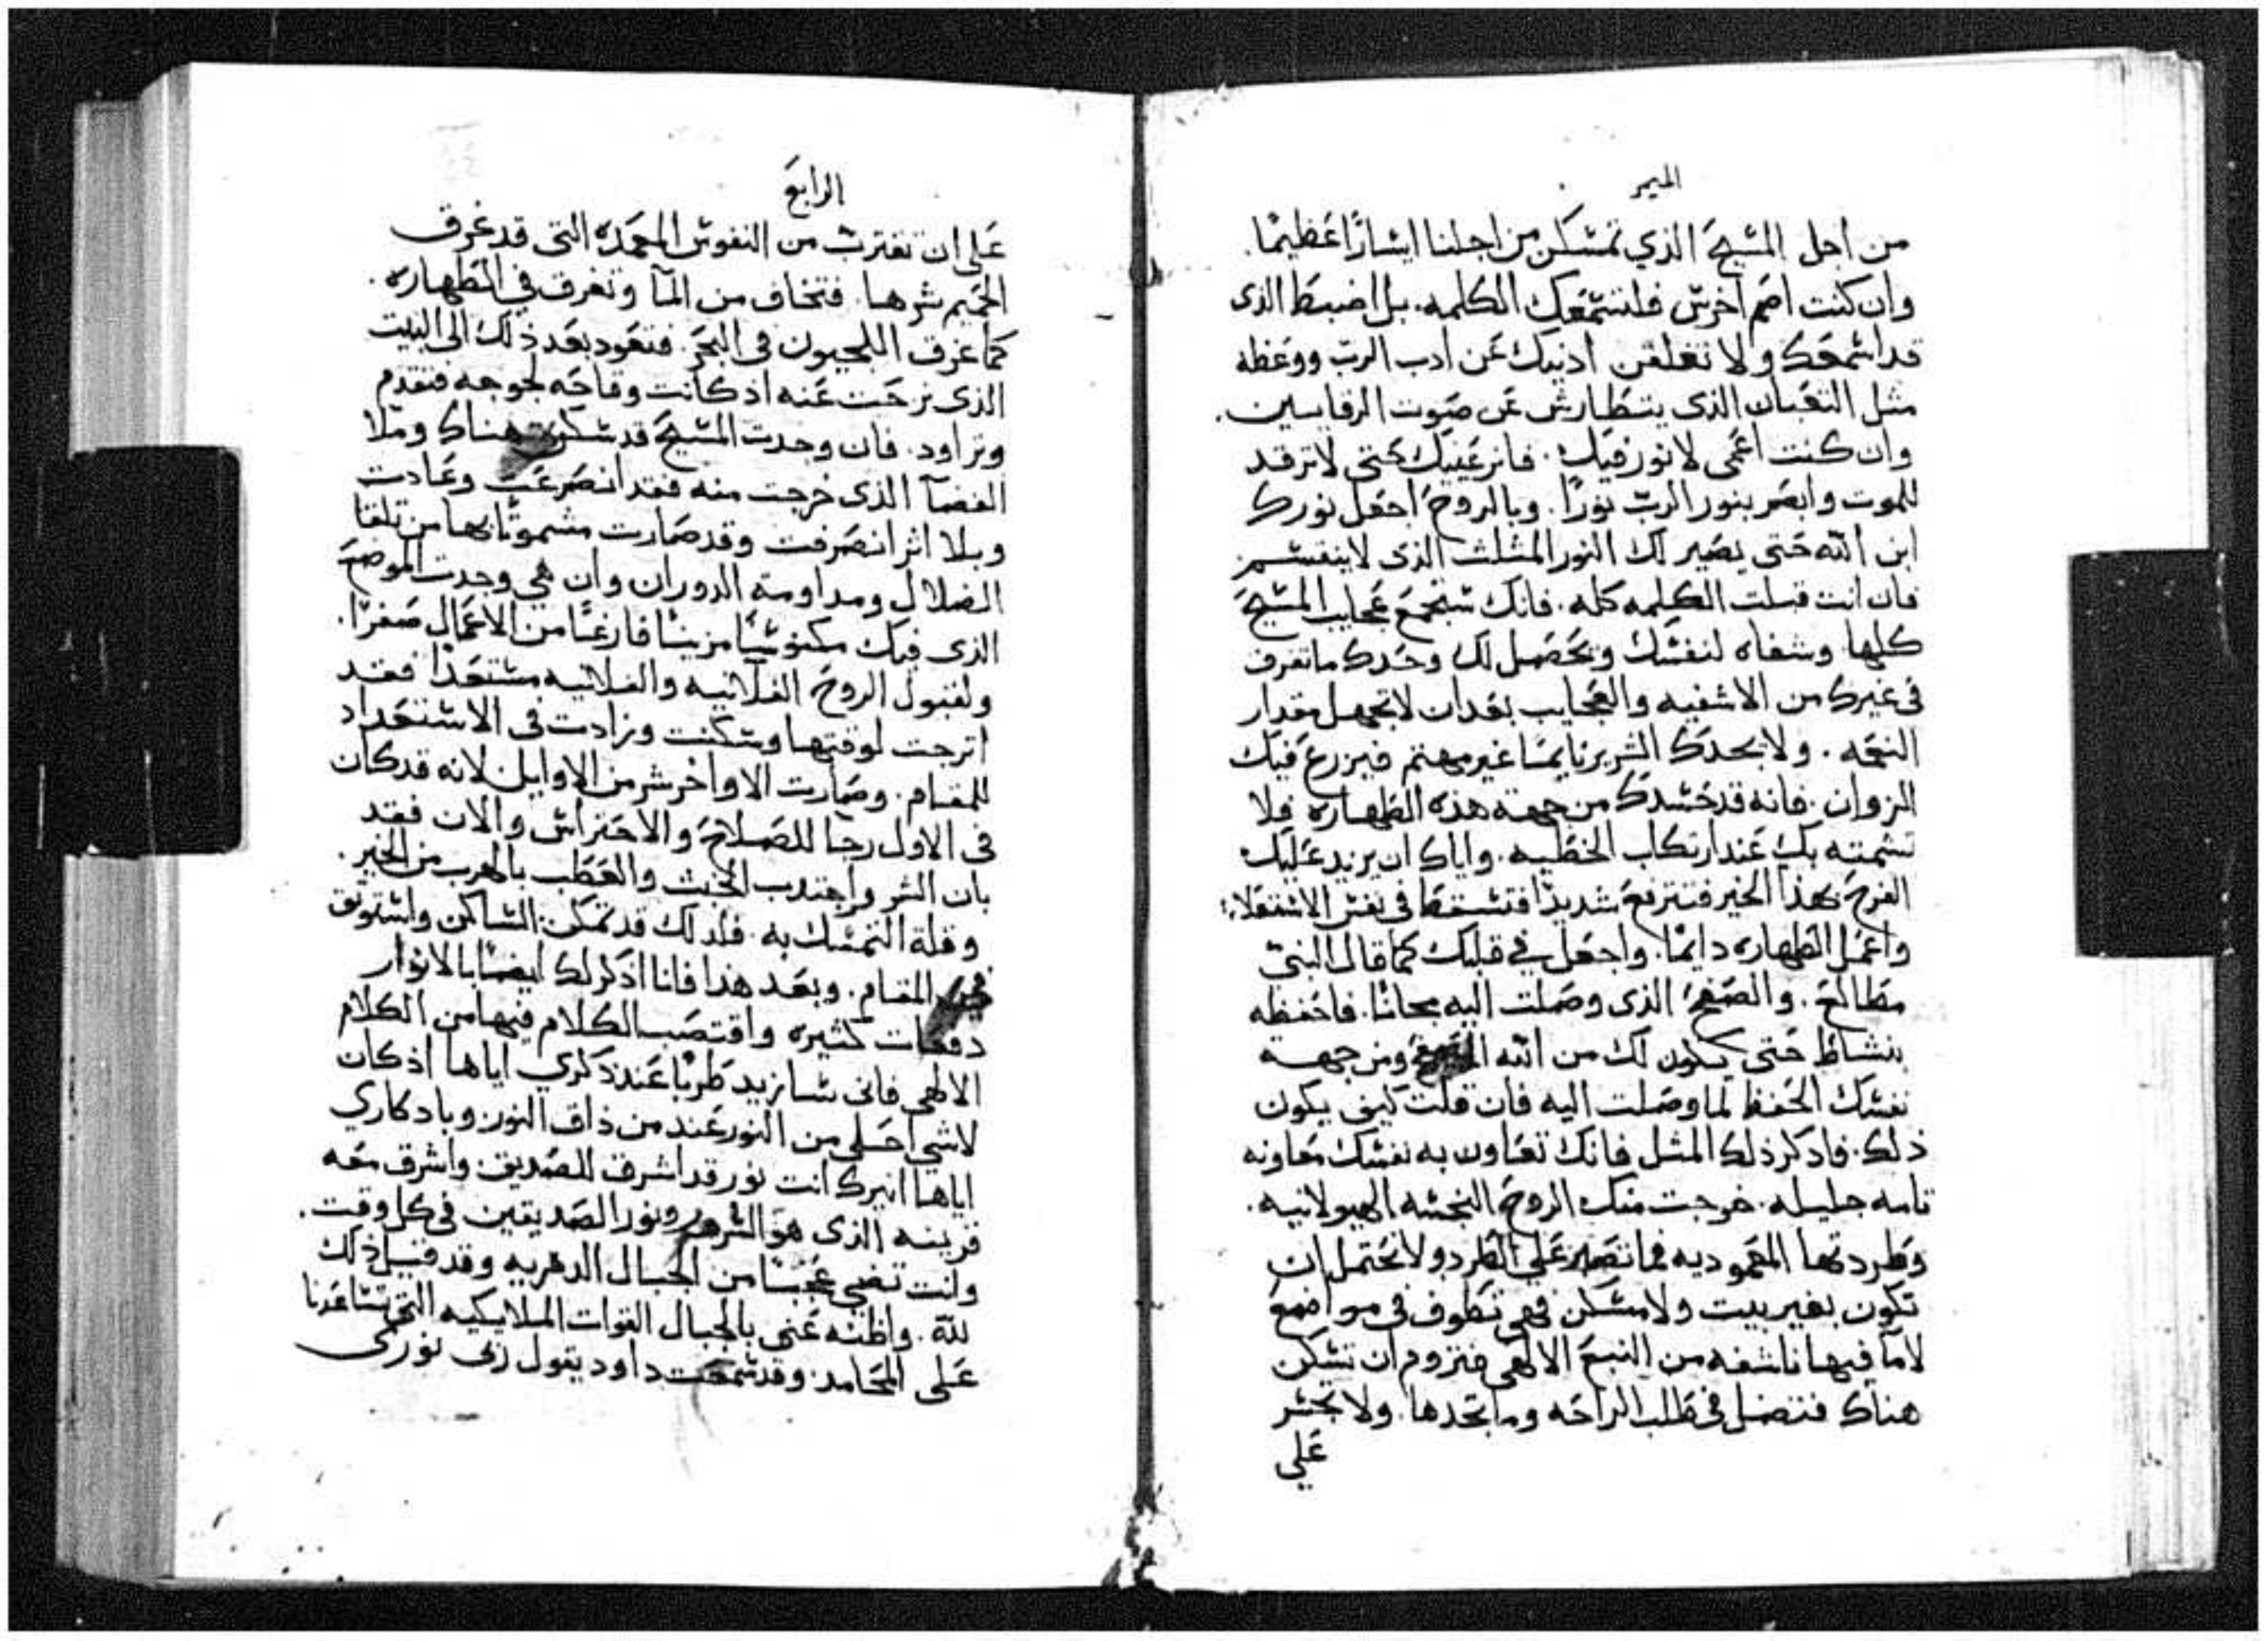 الميمر
من اجل المسيح الذي تمسكن من اجلنا ايسارًا عظيمًا.
وان كنت اصم اخرس فلتسمعك الكلمه. بل اضبط الذى
قد اسمعك ولا تغلقن اذنيك عن ادب الرب ووعظه
مثل الثعبان الذى يتطارش عن صوت الرقايين.
وان كنت اعمى لا نور فيك. فانر عينيك حتى لا ترقد
للموت وابصر بنور الرب نورًا. وبالروح اجعل نورك
ابن الله حتى يصير لك النور المثلث الذى لا ينقسم
فان انت قبلت الكلمه كله. فانك ستجمع عجايب المسيح
كلها وشفاه لنفسك ويحصل لك وحدك ما تعرف
فى غيرك من الاشفيه والعجايب بعد ان لا تجهل مقدار
النعمه. ولا يجدك الشرير نايمًا غير مهتم فيزرع فيك
الزوان. فانه قد حسدك من جهة هذه الطهاره فلا
تشمته بك عند ارتكاب الخطيه. واياك ان يزيد عليك
الفرح بهذا الخير فتترفع شديدًا فتسقط فى نفس الاستعلاء
واعمل الطهاره دايمًا. واجعل فى قلبك كما قال النبى
مطالع. والصفح الذى وصلت اليه مجانًا. فاحفظه
بنشاط حتى يكون لك من الله ومن جهة
نفسك الحفظ لما وصلت اليه فان قلت كيف يكون
ذلك. فاذكر ذلك المثل فانك تعاون به نفسك معاونه
تامه جليله. خرجت منك الروح النجسه الهيولانيه.
وطردتها المعموديه فما تصبر على الطرد ولا تحتمل ان
تكون بغير بيت ولا مسكن فهى تطوف فى مواضع
لا ما فيها ناشفه من النبع الالهى فتروم ان تسكن
هناك فتضل فى طلب الراحه وما تجدها. ولا تجسر
على
الرابع
على ان تقترب من النفوس المعمده التى قد غرق
الحميم شرها. فتخاف من المآ وتغرق فى الطهاره.
كما غرق اللجيون فى البحر. فتعود بعد ذلك الى البيت
الذى نزحت عنه اذ كانت وقاحه لجوجه فتقدم
وتراود. فان وجدت المسيح قد سكن هناك وملا
الفضآ الذى خرجت منه فقد انصرعت وعادت
وبلا اثر انصرفت وقد صارت مشموتًا بها من تلقا
الضلال ومداومة الدوران وان هى وجدت الموضع
الذى فيك مكنوسًا مزينًا فارغًا من الاعمال صفرًا.
ولقبول الروح الفلانيه والفلانيه مستعدًا فقد
اترجت لوقتها وسكنت وزادت فى الاستعداد
للمقام. وصارت الاواخر شر من الاوايل لانه قد كان
فى الاول رجا للصلاح والاحتراس والان فقد
بان الشر واجتدب الخبث والعطب بالهرب من الخير.
وقلة التمسك به. فلذلك قد تمكن الساكن واستوثق
المقام. وبعد هذا فانا اذكر لك ايضًا بالانوار
دفعات كثيره واقتضب الكلام فيها من الكلام
الالهى فانى سازيد طربًا عند ذكري اياها اذ كان
لا شى احلى من النور عند من ذاق النور وبادكاري
اياها انيرك انت نور قد اشرق للصديق واشرق معه
قرينه الذى هو السرور ونور الصديقين فى كل وقت.
وانت تضى عجبًا من الجبال الدهريه وقد قيل ذلك
لله. واظنه عنى بالجبال القوات الملايكيه التى تساعدنا
على المحامد. وقد سمعت داود يقول ربى نورى